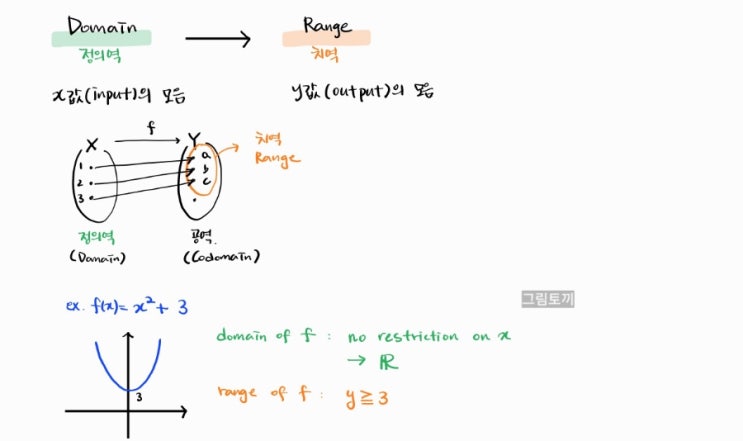 Domain → Range
정의역 치역
x값(input)의 모음 y값(output)의 모음
f
X Y
치역
Range
1 a
2 b
3 c
정의역 공역.
(Domain) (Codomain)
그림토끼
ex. f(x)= x² + 3
domain of f : no restriction on x
→ ℝ
3
range of f : y ≧ 3